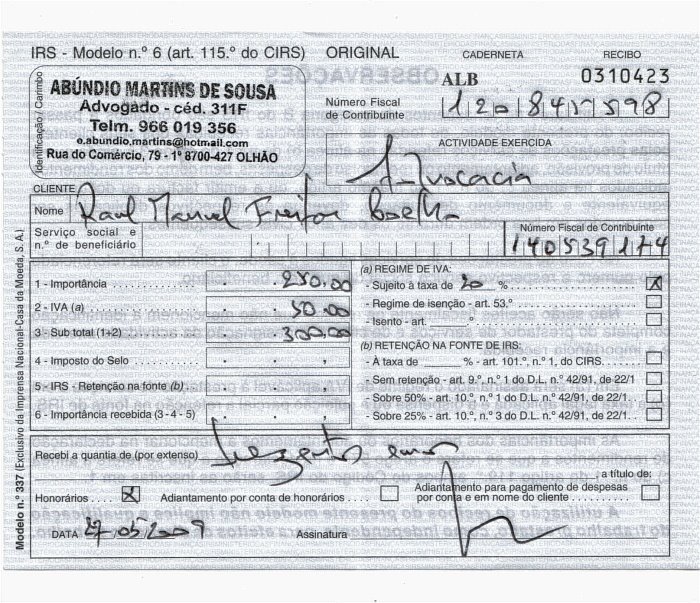 IRS - Modelo n.º 6 (art. 115.º do CIRS) ORIGINAL CADERNETA RECIBO
ALB 0310423
Identificação / Carimbo
ABÚNDIO MARTINS DE SOUSA
Advogado - céd. 311F
Telm. 966 019 356
e.abundio.martins@hotmail.com
Rua do Comércio, 79 - 1º 8700-427 OLHÃO
Número Fiscal de Contribuinte 120845598
ACTIVIDADE EXERCIDA
Advocacia
CLIENTE
Nome Raul Manuel Freitas Coelho
Serviço social e n.º de beneficiário
Número Fiscal de Contribuinte
140539174
1 - Importância 250,00
2 - IVA (a) 50,00
3 - Sub total (1+2) 300,00
4 - Imposto do Selo
5 - IRS - Retenção na fonte (b)
6 - Importância recebida (3 - 4 - 5)
(a) REGIME DE IVA:
- Sujeito à taxa de 20 % X
- Regime de isenção - art. 53.º
- Isento - art. ______ º
(b) RETENÇÃO NA FONTE DE IRS:
- À taxa de ______ % - art. 101.º, n.º 1, do CIRS
- Sem retenção - art. 9.º, n.º 1 do D.L. n.º 42/91, de 22/1
- Sobre 50% - art. 10.º, n.º 1 do D.L. n.º 42/91, de 22/1
- Sobre 25% - art. 10.º, n.º 3 do D.L. n.º 42/91, de 22/1
Recebi a quantia de (por extenso) trezentos euros
a título de:
Honorários X Adiantamento por conta de honorários Adiantamento para pagamento de despesas por conta e em nome do cliente
DATA 27/05/2009 Assinatura
Modelo n.º 337 (Exclusivo da Imprensa Nacional-Casa da Moeda, S. A.)